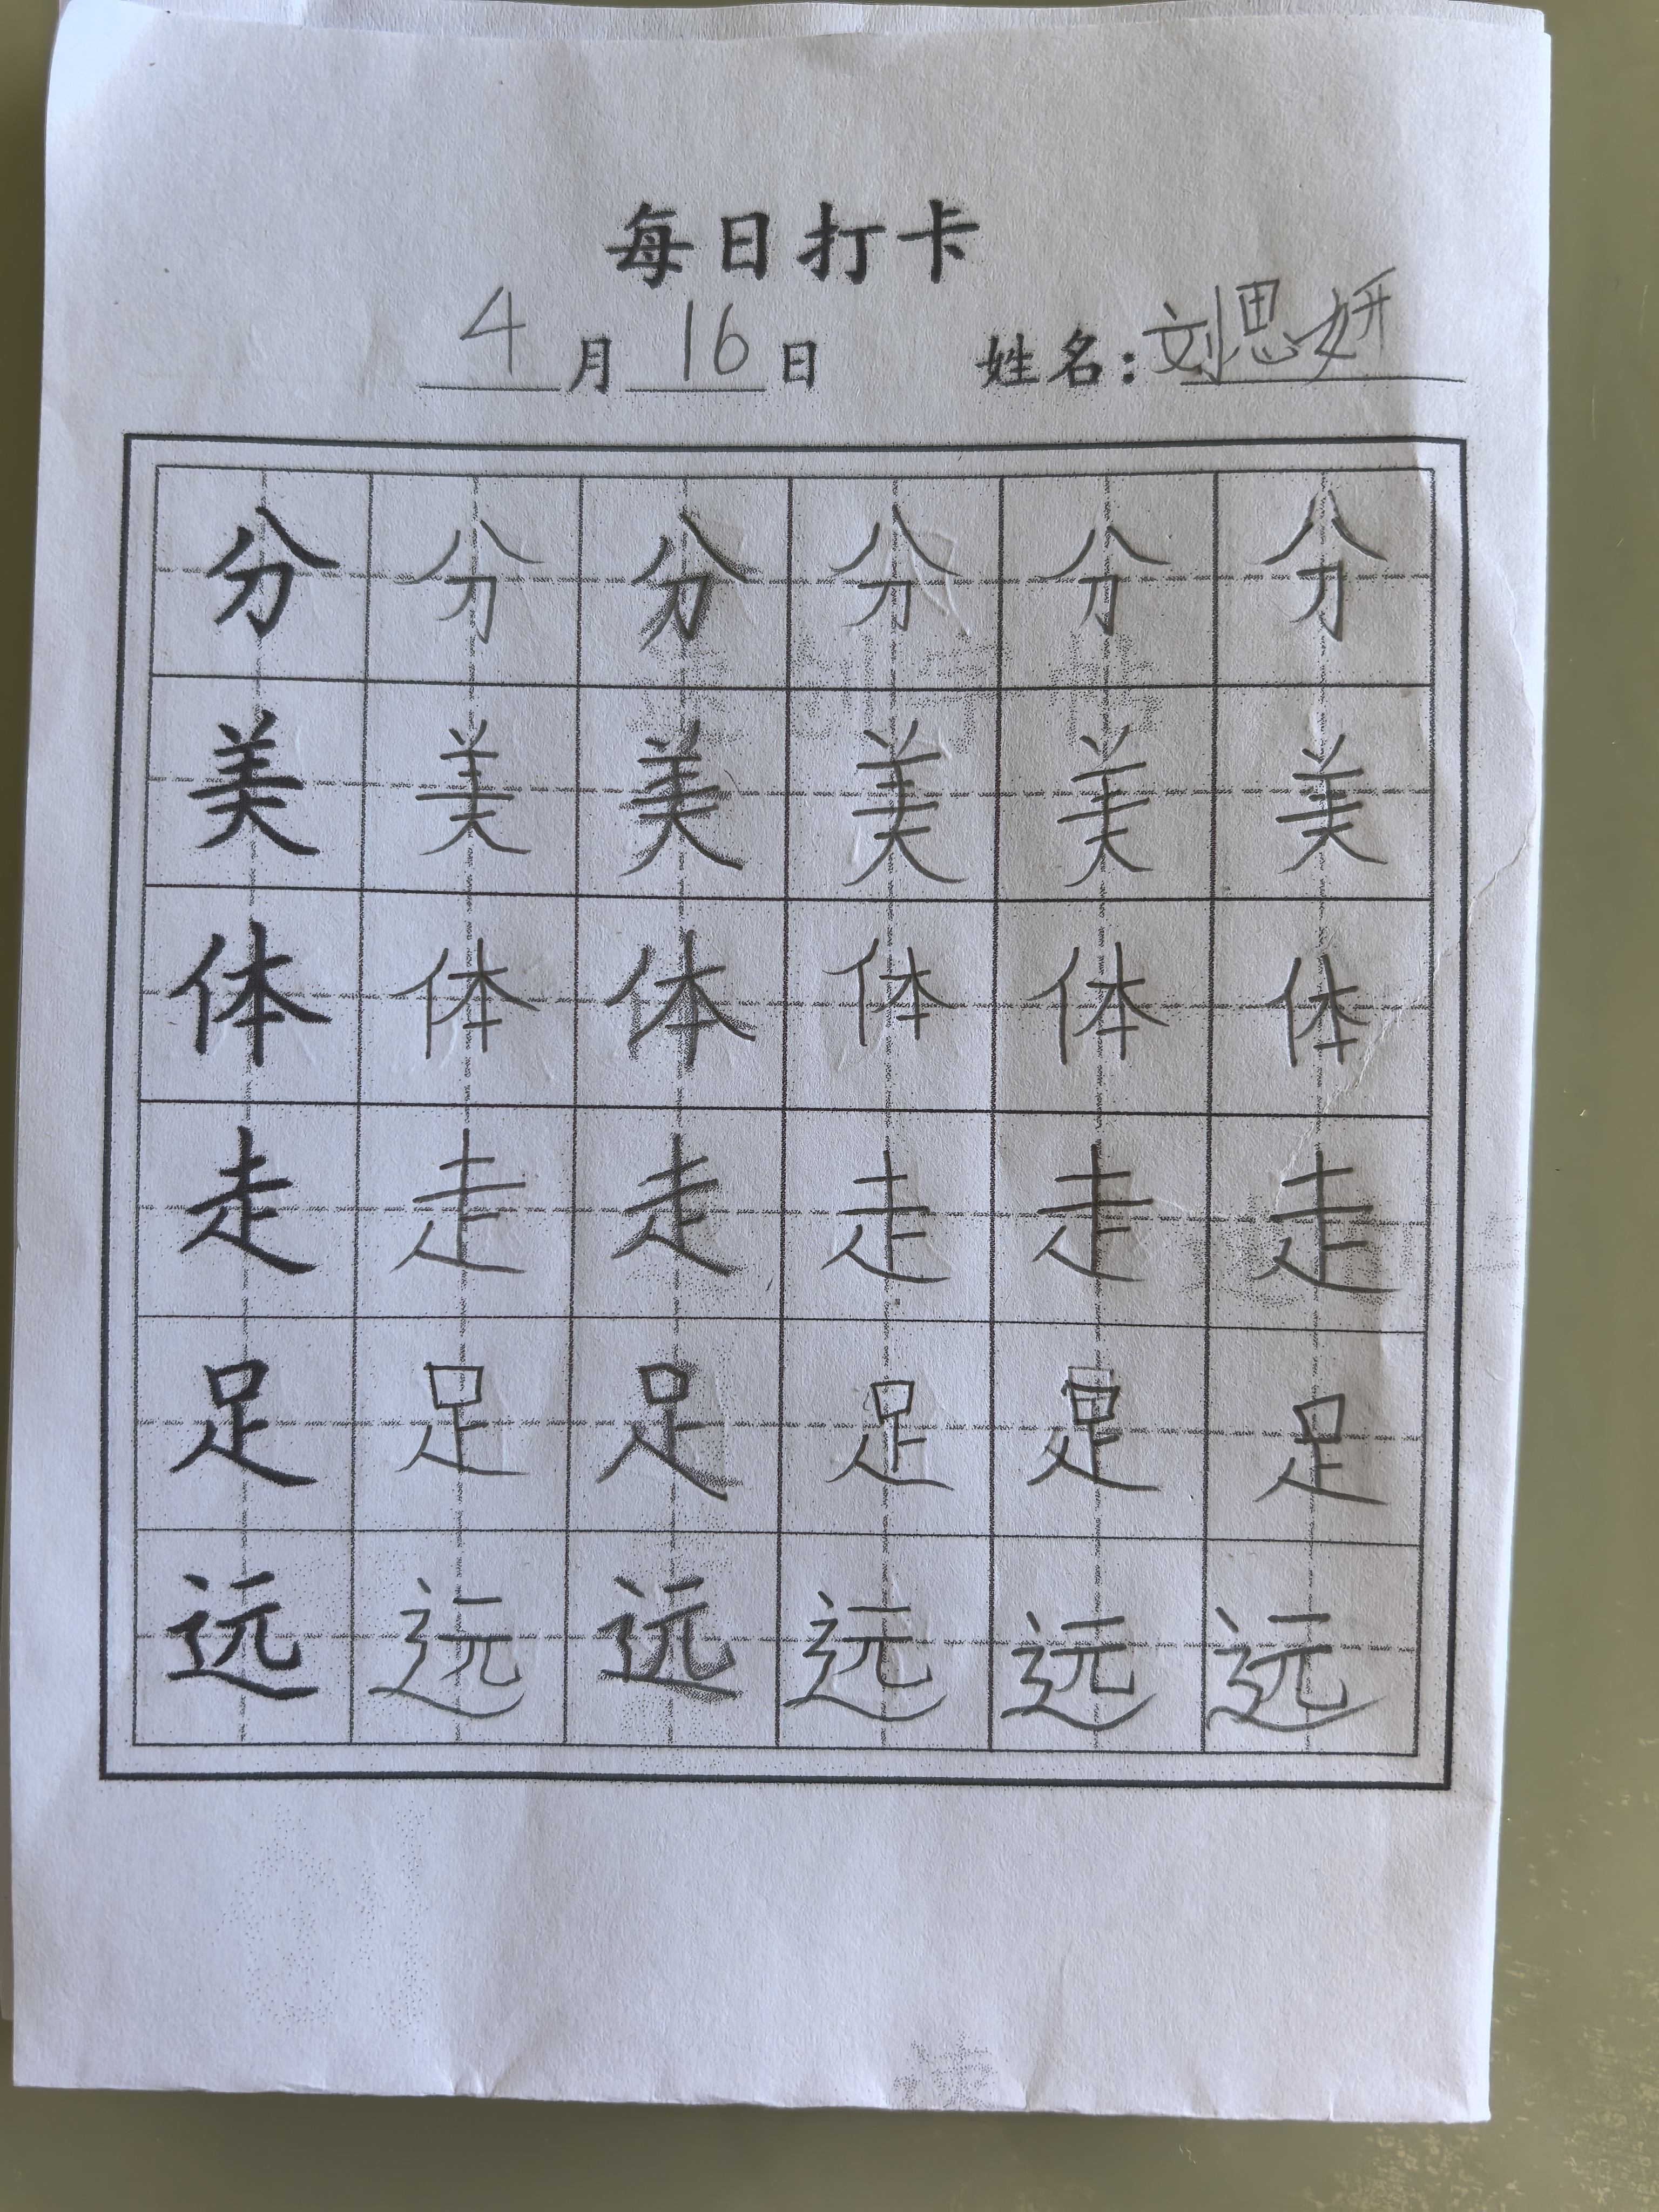 每日打卡
4月16日 姓名:刘思妍
分 分 分 分 分 分
美 美 美 美 美 美
体 体 体 体 体 体
走 走 走 走 走 走
足 足 足 足 足 足
远 远 远 远 远 远